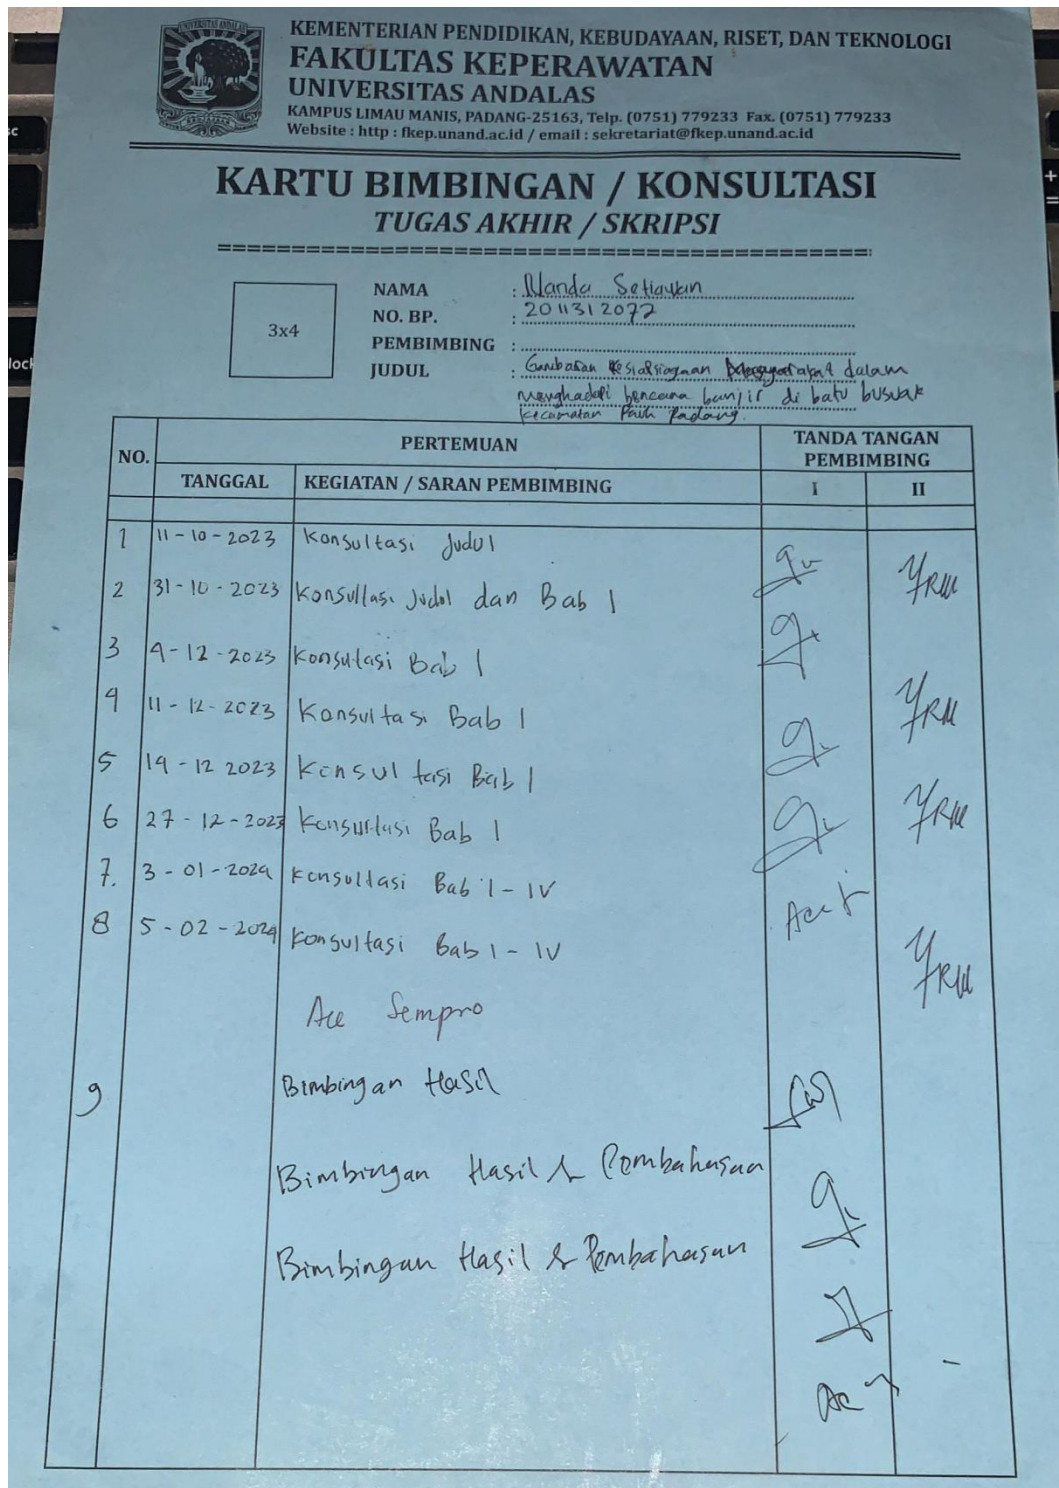 UNIVERSITAS ANDALAS
KEMENTERIAN PENDIDIKAN, KEBUDAYAAN, RISET, DAN TEKNOLOGI
FAKULTAS KEPERAWATAN
UNIVERSITAS ANDALAS
KAMPUS LIMAU MANIS, PADANG-25163, Telp. (0751) 779233 Fax. (0751) 779233
Website : http : fkep.unand.ac.id / email : sekretariat@fkep.unand.ac.id
KARTU BIMBINGAN / KONSULTASI
TUGAS AKHIR / SKRIPSI
3x4
NAMA : Nanda Setiawan
NO. BP. : 2011312077
PEMBIMBING :
JUDUL : Gambaran Kesiapsiagaan dalam
menghadapi bencana banjir di batu busuak
Kecamatan Pauh Padang.
NO. PERTEMUAN TANDA TANGAN PEMBIMBING
TANGGAL KEGIATAN / SARAN PEMBIMBING I II
1 11-10-2023 Konsultasi Judul
2 31-10-2023 Konsultasi Judul dan Bab I
3 9-12-2023 Konsultasi Bab I
4 11-12-2023 Konsultasi Bab I
5 19-12 2023 Konsultasi Bab I
6 27-12-2023 Konsultasi Bab I
7. 3-01-2024 Konsultasi Bab I-IV
8 5-02-2024 Konsultasi Bab I-IV
Acc Sempro
9 Bimbingan Hasil
Bimbingan Hasil & Pembahasan
Bimbingan Hasil & Pembahasan